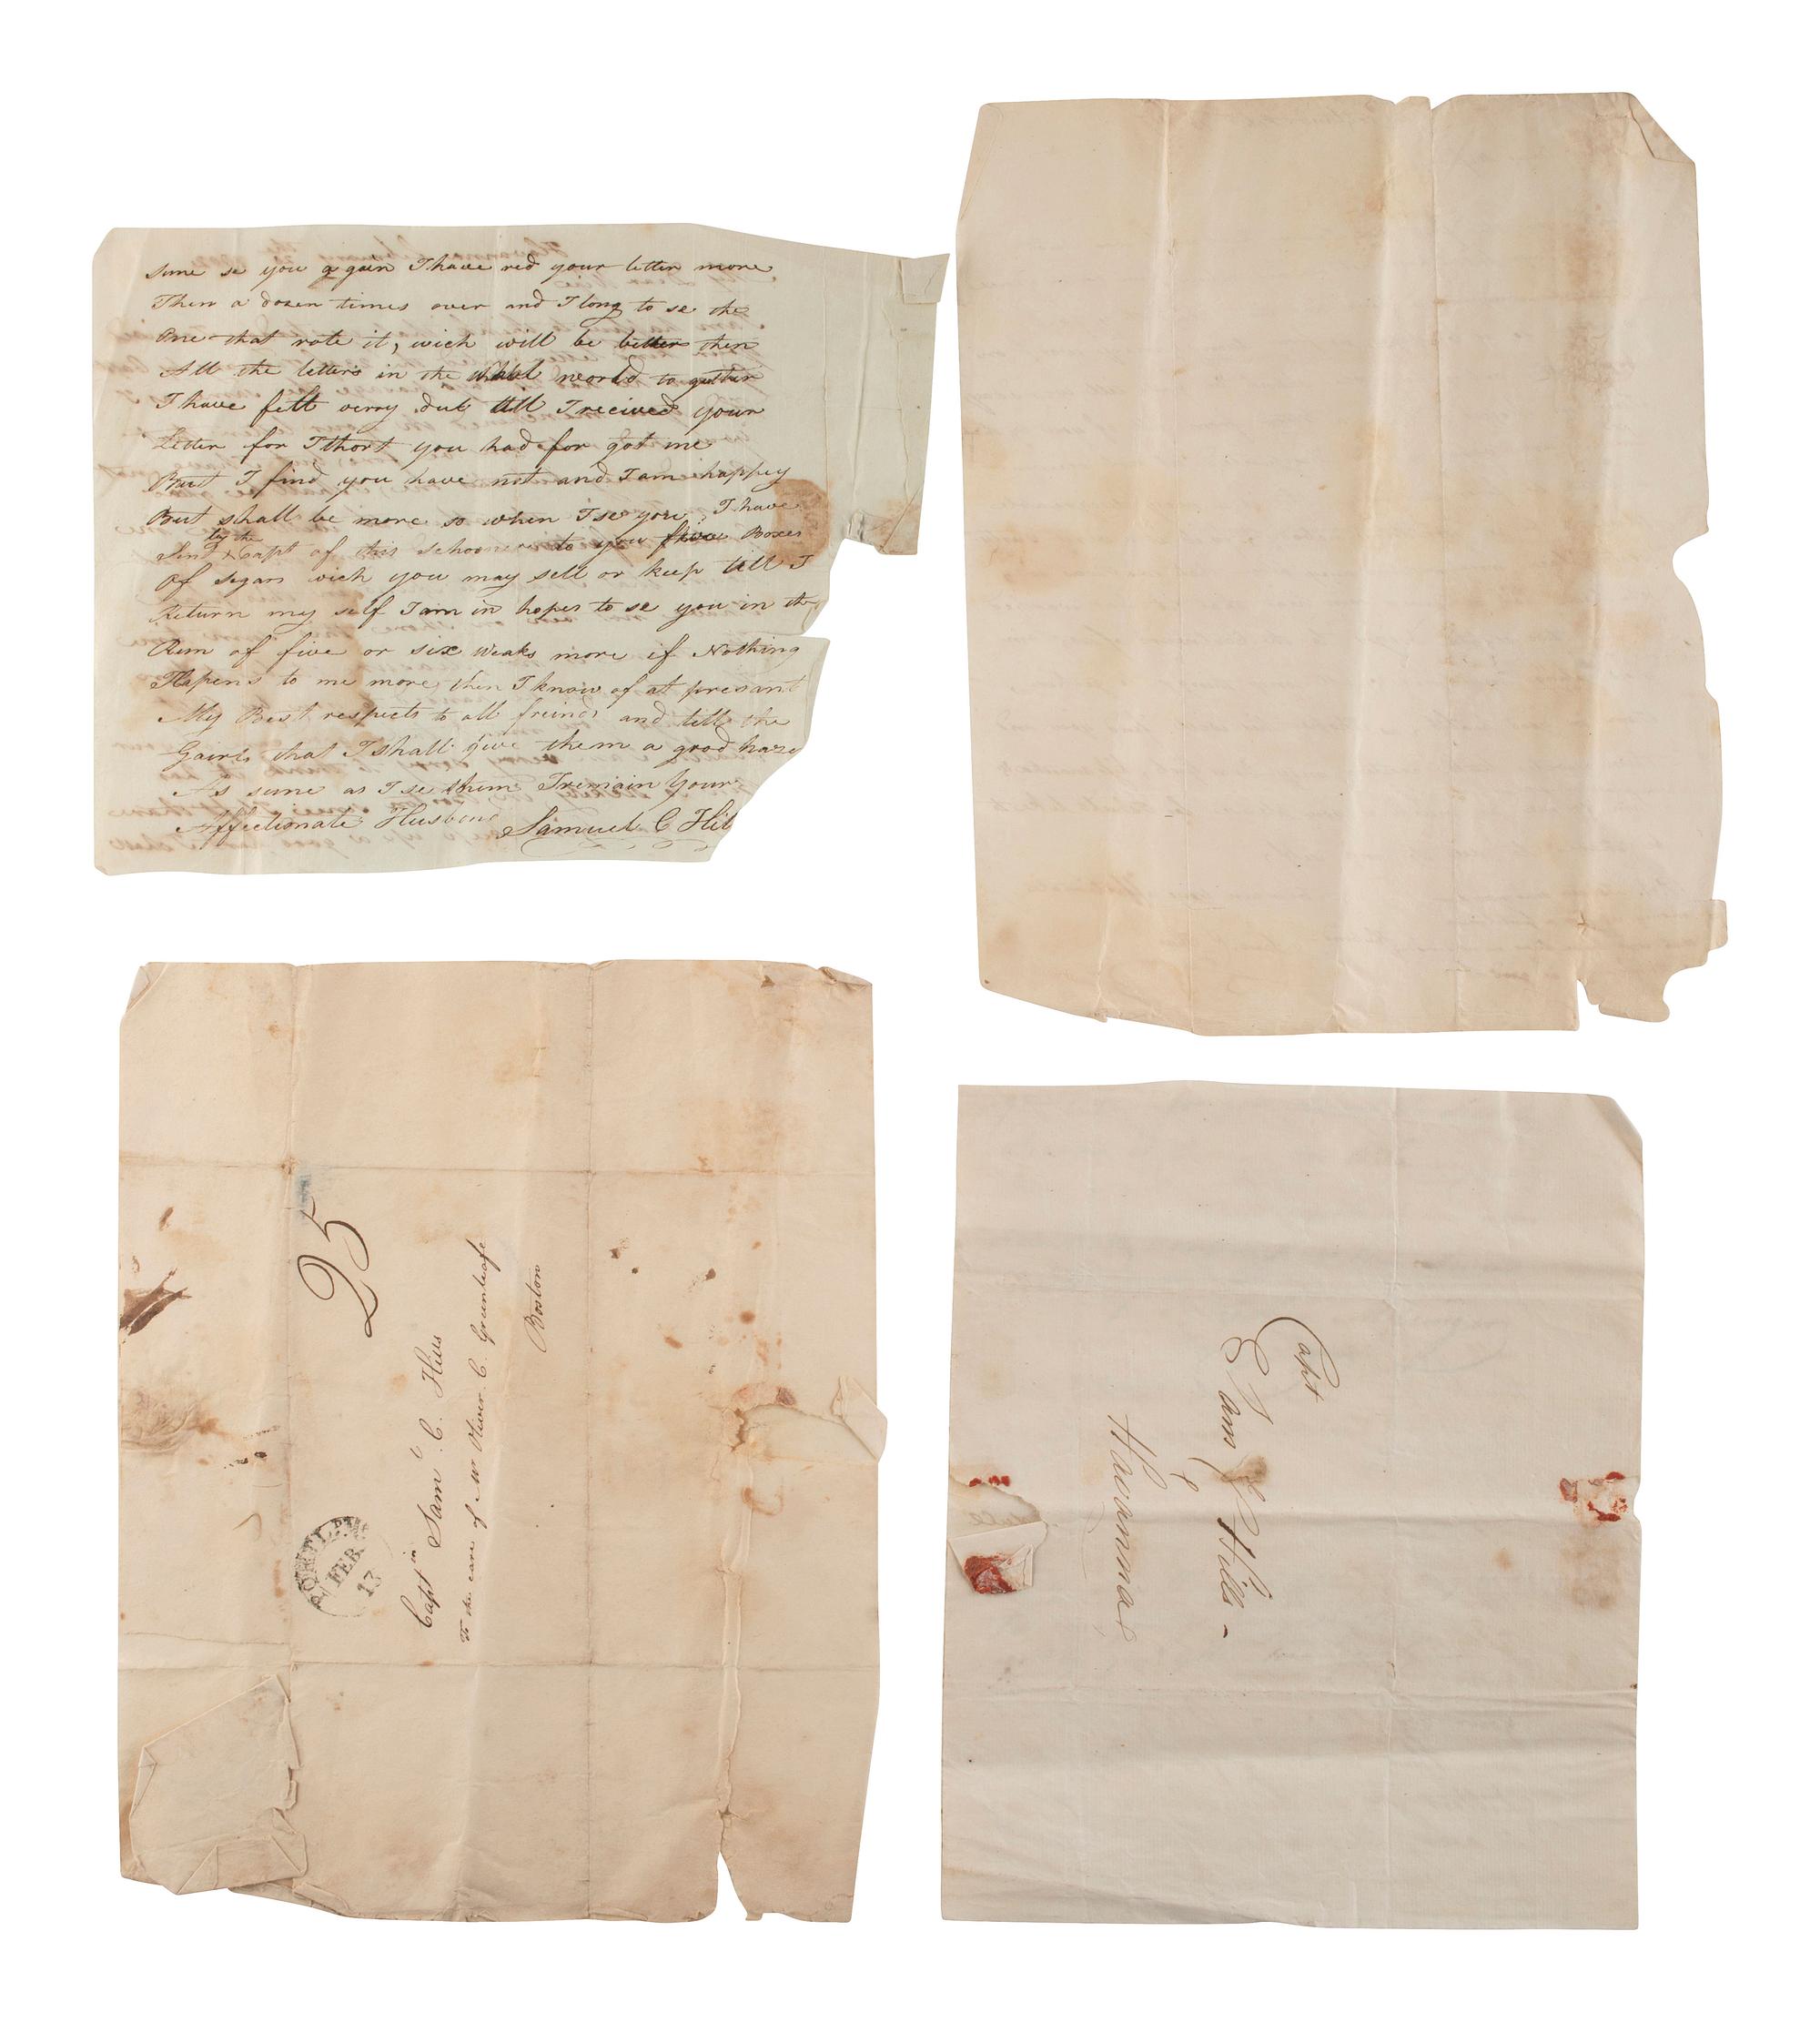 sune se you a gain I have red your letter more
Then a dozen times over and I long to se the
One that rote it, wich will be better then
All the letters in the whole world to gether
I have felt verry dul till I recived your
Letter for I thort you had for got me
But I find you have not and I am happy
But shall be more so when I se you, I have
by the
Send x Capt of this schooner to you five Boxes
Of segars wich you may sell or keep till I
Return my self I am in hopes to se you in the
Rum of five or six weaks more if Nothing
Hapens to me more then I know of at presant
My Best respects to all freinds and tell the
Gairls that I shall give them a good haze
As sune as I se them I remain Your
Affectionate Husband Samuel C Hil
25
PORTLAND
FEB
13
Captin Saml C. Hills
To the care of Mr Oliver C. Greenleafe
Boston
Capt
Hills -
Havanna